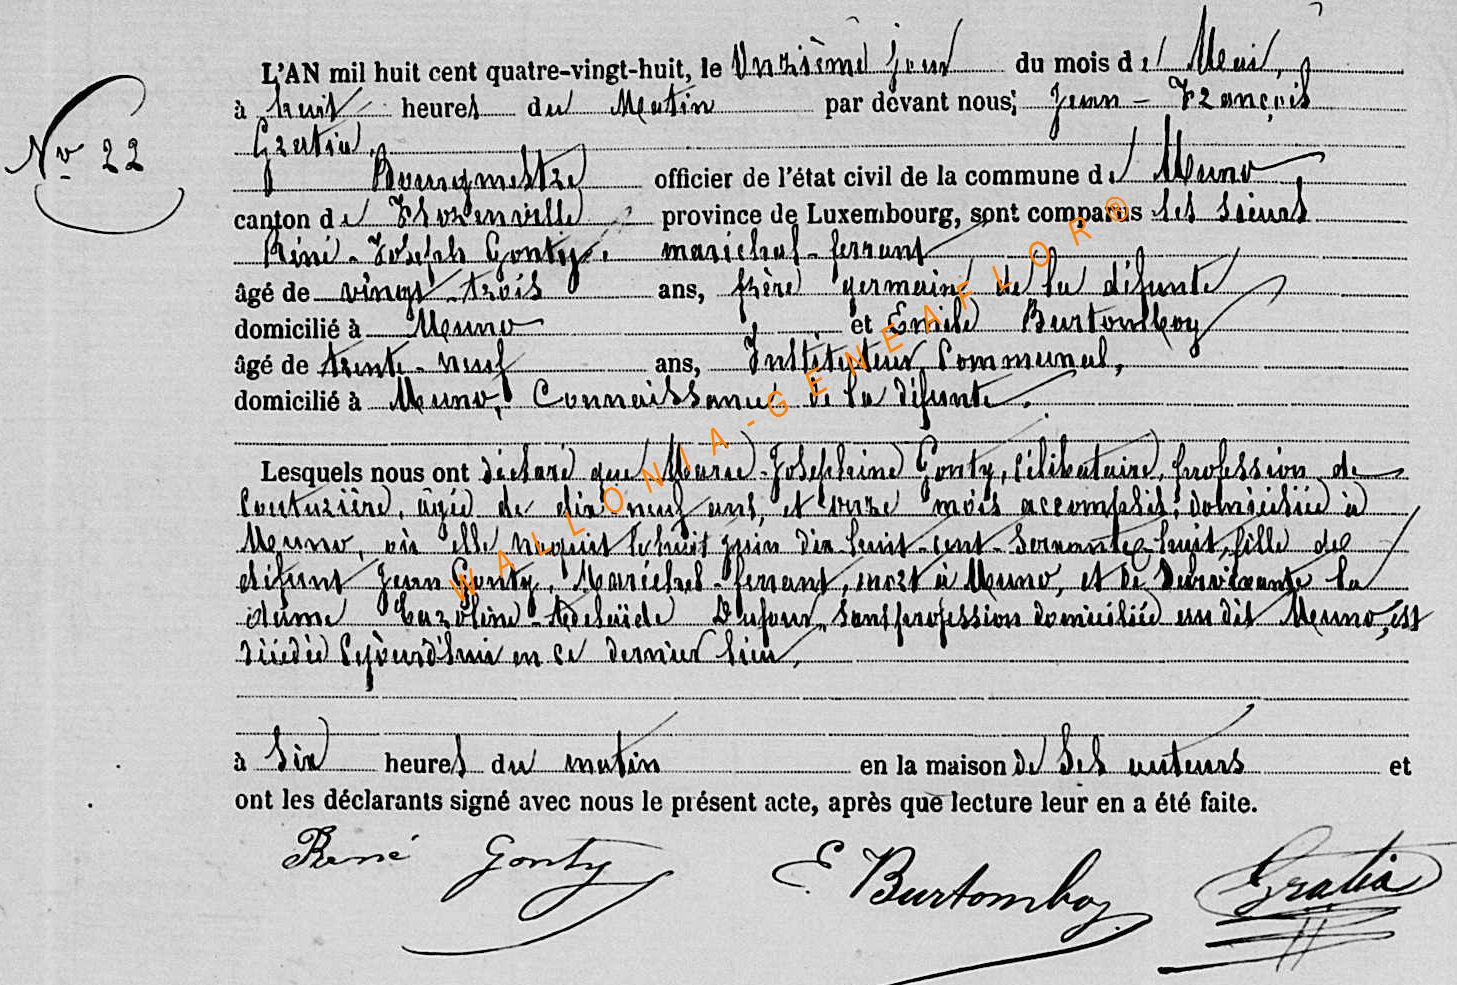 N° 22
L'AN mil huit cent quatre-vingt-huit, le Onzième jour du mois de Mai,
à huit heures du Matin par devant nous, Jean-François
Gratia,
Bourgmestre officier de l'état civil de la commune de Muno
canton de Florenville province de Luxembourg, sont comparus les sieurs
Réné-Joseph Gonty, maréchal-ferrant
âgé de vingt-trois ans, frère germain de la défunte
domicilié à Muno et Emile Burtomboy
âgé de trente-neuf ans, Instituteur Communal,
domicilié à Muno, Connaissance de la défunte.
Lesquels nous ont déclaré que Marie-Joséphine Gonty, célibataire, profession de
Couturière, âgée de dix neuf ans, et onze mois accomplis, domiciliée à
Muno, où elle naquit le huit juin dix huit-cent-soixante-huit, fille de
défunt Jean Gonty, Maréchal-ferrant, mort à Muno, et de survivante la
dame Caroline-Adelaïde Dufour, sans profession domiciliée au dit Muno, est
décédée cejourd'hui en ce dernier lieu,
à six heures du matin en la maison de ses auteurs et
ont les déclarants signé avec nous le présent acte, après que lecture leur en a été faite.
René Gonty E. Burtomboy Gratia
WALLONIA-GENEAFLOR®